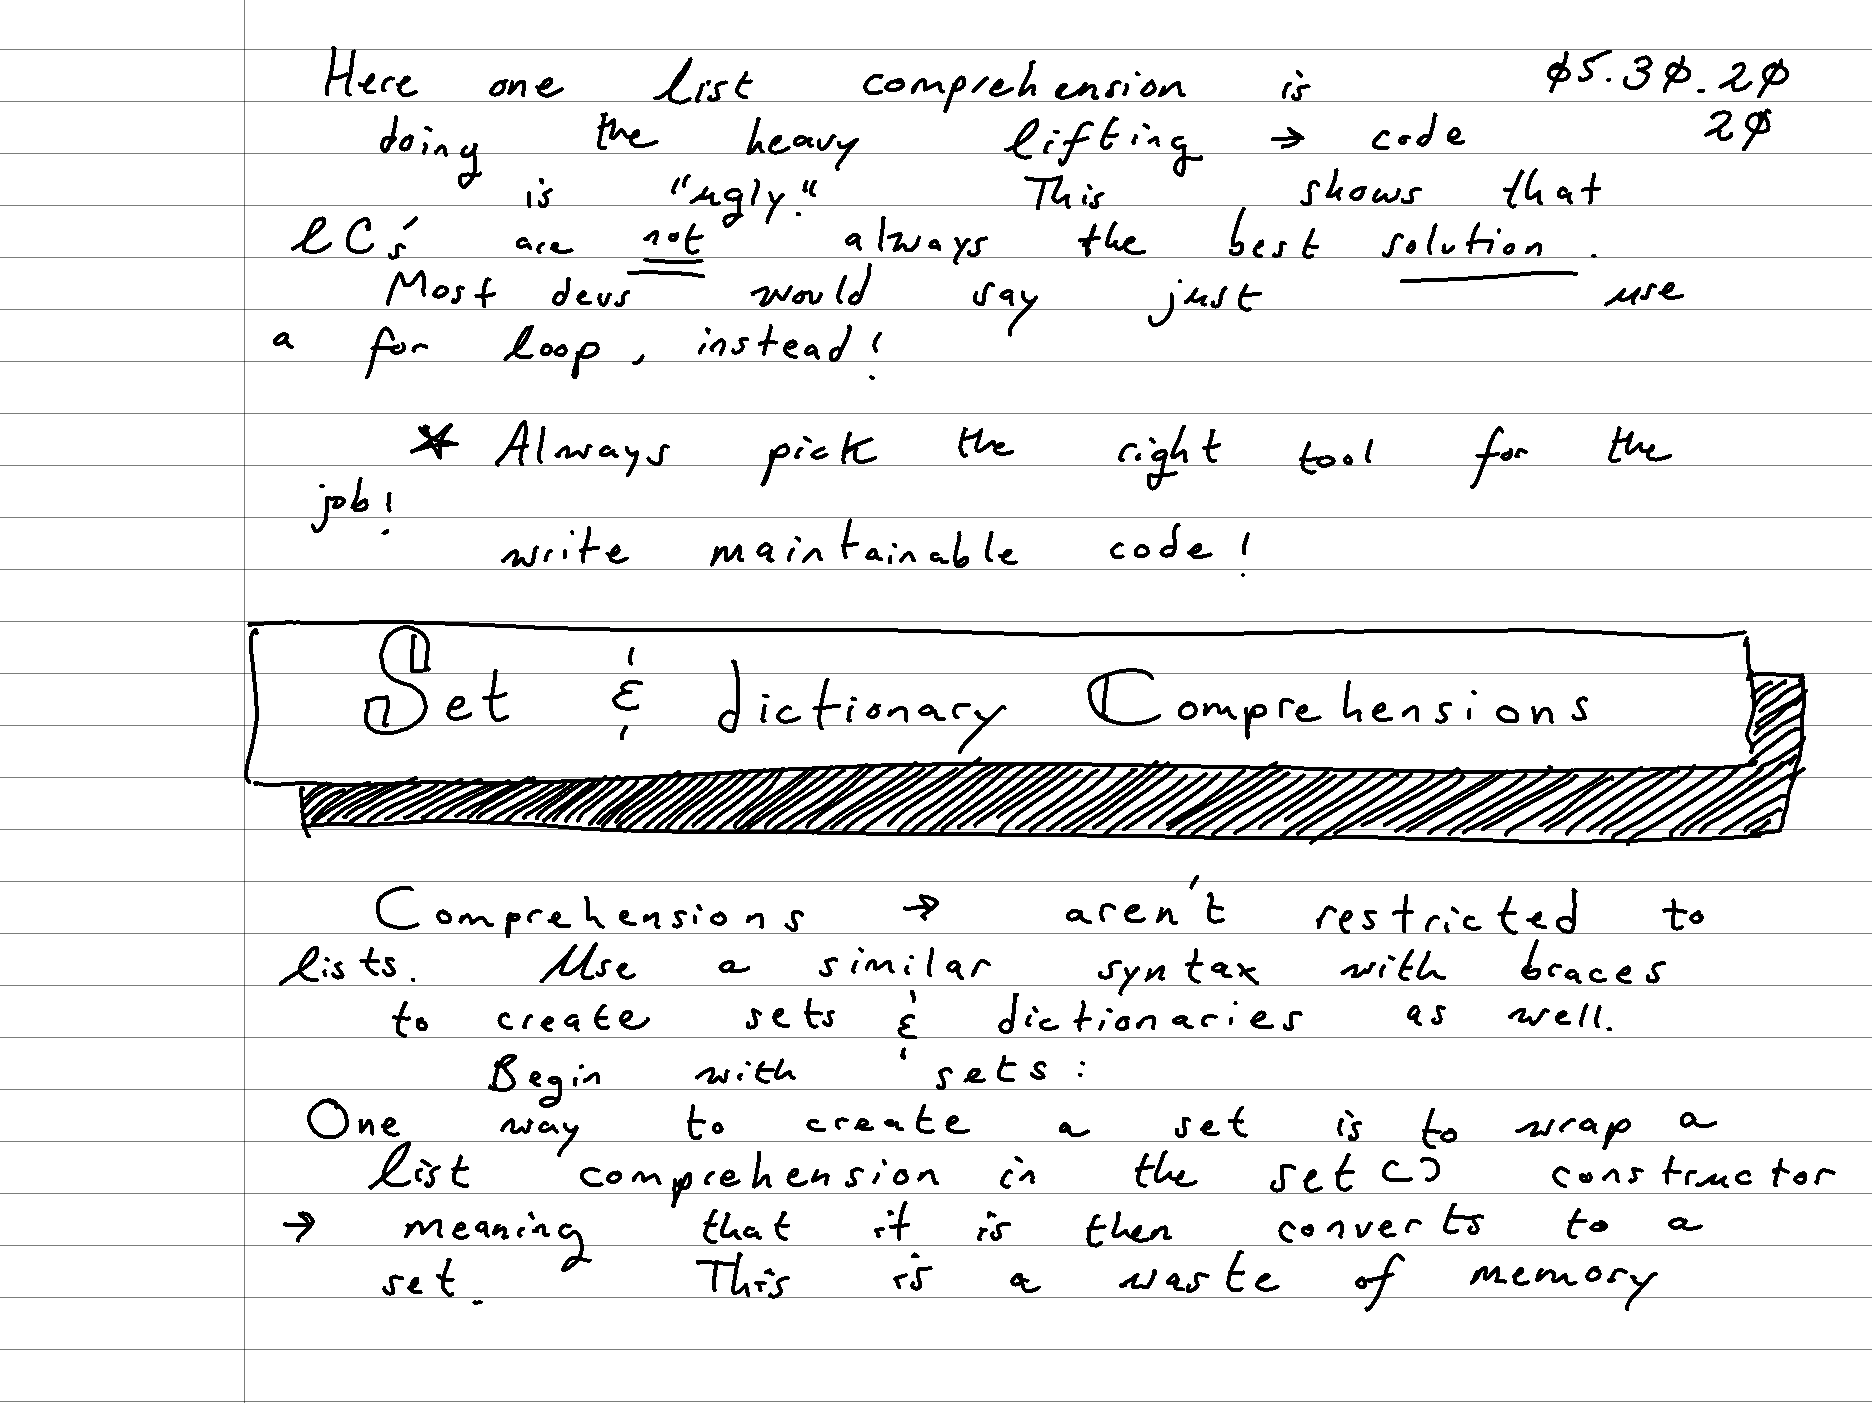 Here one list comprehension is ø5.3ø.2ø
doing the heavy lifting → code 2ø
is "ugly." This shows that
LC's are not always the best solution.
Most devs would say just use
a for loop, instead!
* Always pick the right tool for the
job!
write maintainable code!
Set & dictionary Comprehensions
Comprehensions → aren't restricted to
lists. Use a similar syntax with braces
to create sets & dictionaries as well.
Begin with sets:
One way to create a set is to wrap a
list comprehension in the set() constructor
→ meaning that it is then converts to a
set. This is a waste of memory